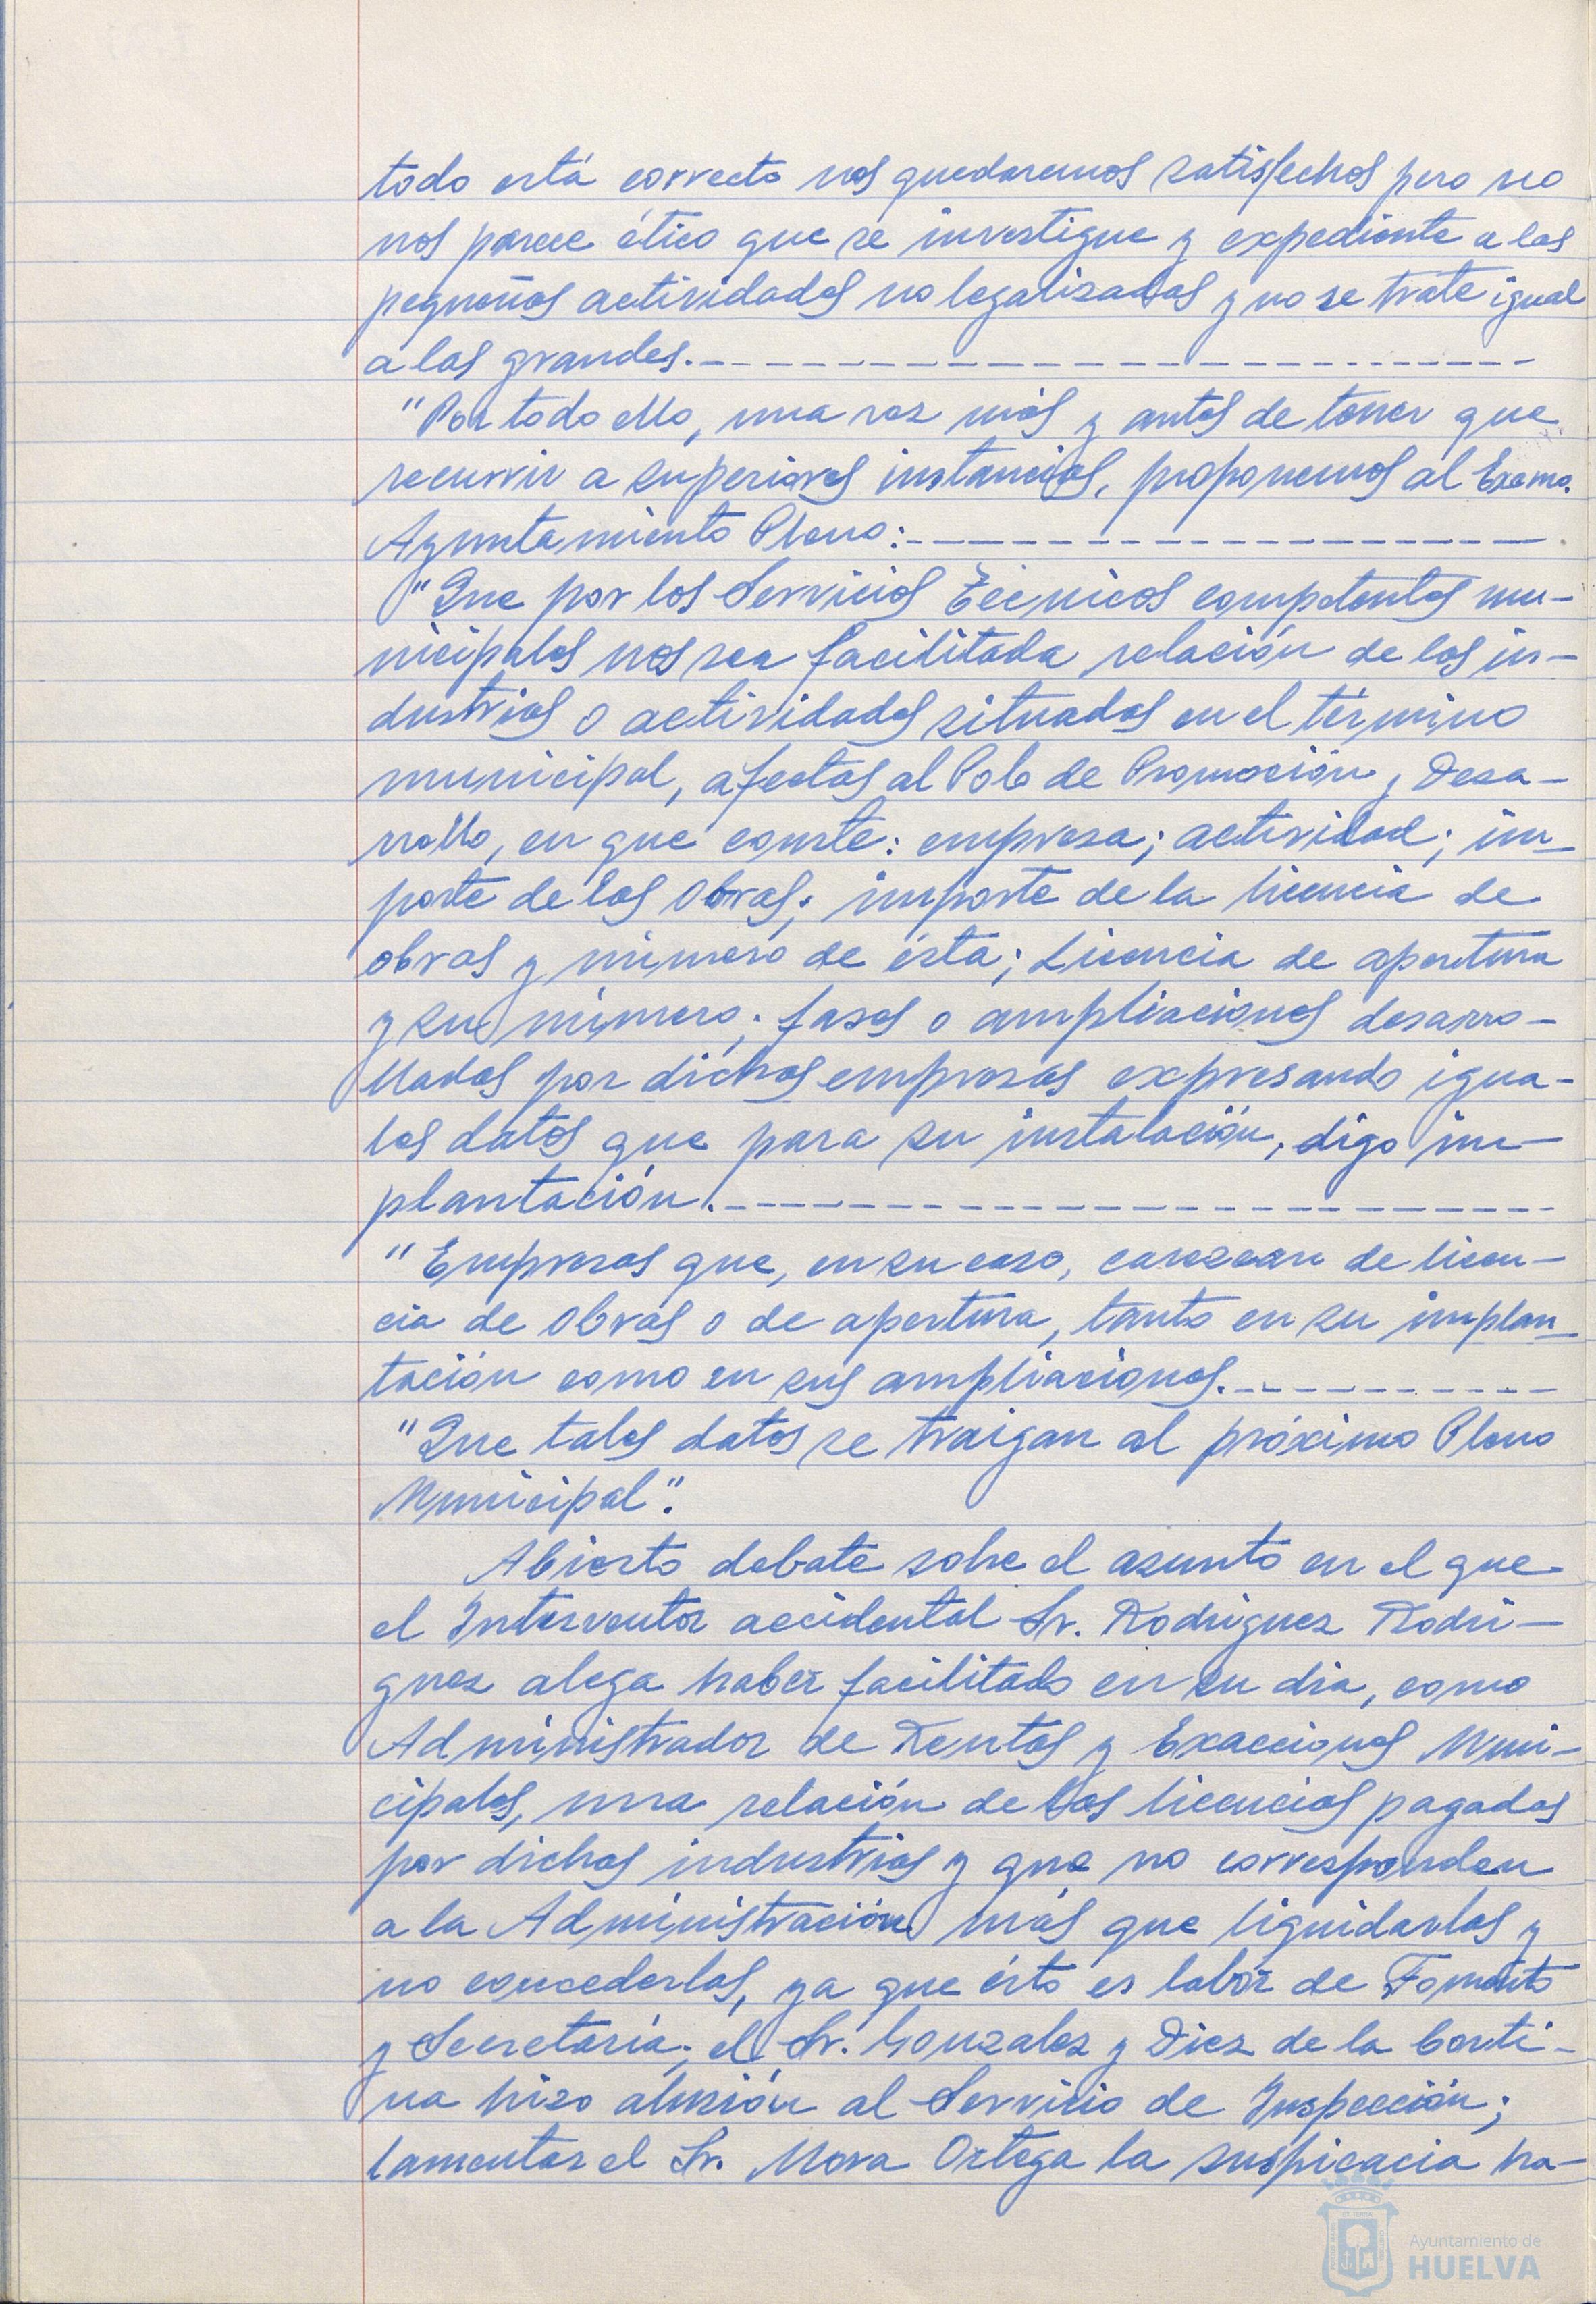 todo está correcto nos quedaremos satisfechos pero no
nos parece ético que se investigue y expediente a las
pequeñas actividades no legalizadas y no se trate igual
a las grandes.- - - - - - - - - - - - - - - - - - - - - -
"Por todo ello, una vez más y antes de tener que
recurrir a superiores instancias, proponemos al Excmo.
Ayuntamiento Pleno:- - - - - - - - - - - - - - - - -
"Que por los Servicios Técnicos competentes mu-
nicipales nos sea facilitada relación de las in-
dustrias o actividades situadas en el término
municipal, afectas al Polo de Promoción y Desa-
rrollo, en que conste: empresa; actividad; im-
porte de las obras; importe de la licencia de
obras y número de ésta; Licencia de apertura
y su número; fases o ampliaciones desarro-
lladas por dichas empresas expresando igua-
les datos que para su instalación, digo im-
plantación.- - - - - - - - - - - - - - - - - - - - - -
"Empresas que, en su caso, carezcan de licen-
cia de obras o de apertura, tanto en su implan-
tación como en sus ampliaciones.- - - - - - - - -
"Que tales datos se traigan al próximo Pleno
Municipal".
Abierto debate sobre el asunto en el que
el Interventor accidental Sr. Rodriguez Rodri-
guez alega haber facilitado en su dia, como
Administrador de Rentas y Exacciones Muni-
cipales, una relación de las licencias pagadas
por dichas industrias y que no corresponden
a la Administración más que liquidarlas y
no concederlas, ya que ésto es labor de Fomento
y Secretaría; el Sr. Gonzalez y Diez de la Corti-
na hizo alusión al Servicio de Inspección;
lamentar el Sr. Mora Ortega la suspicacia ha-
Ayuntamiento de
HUELVA